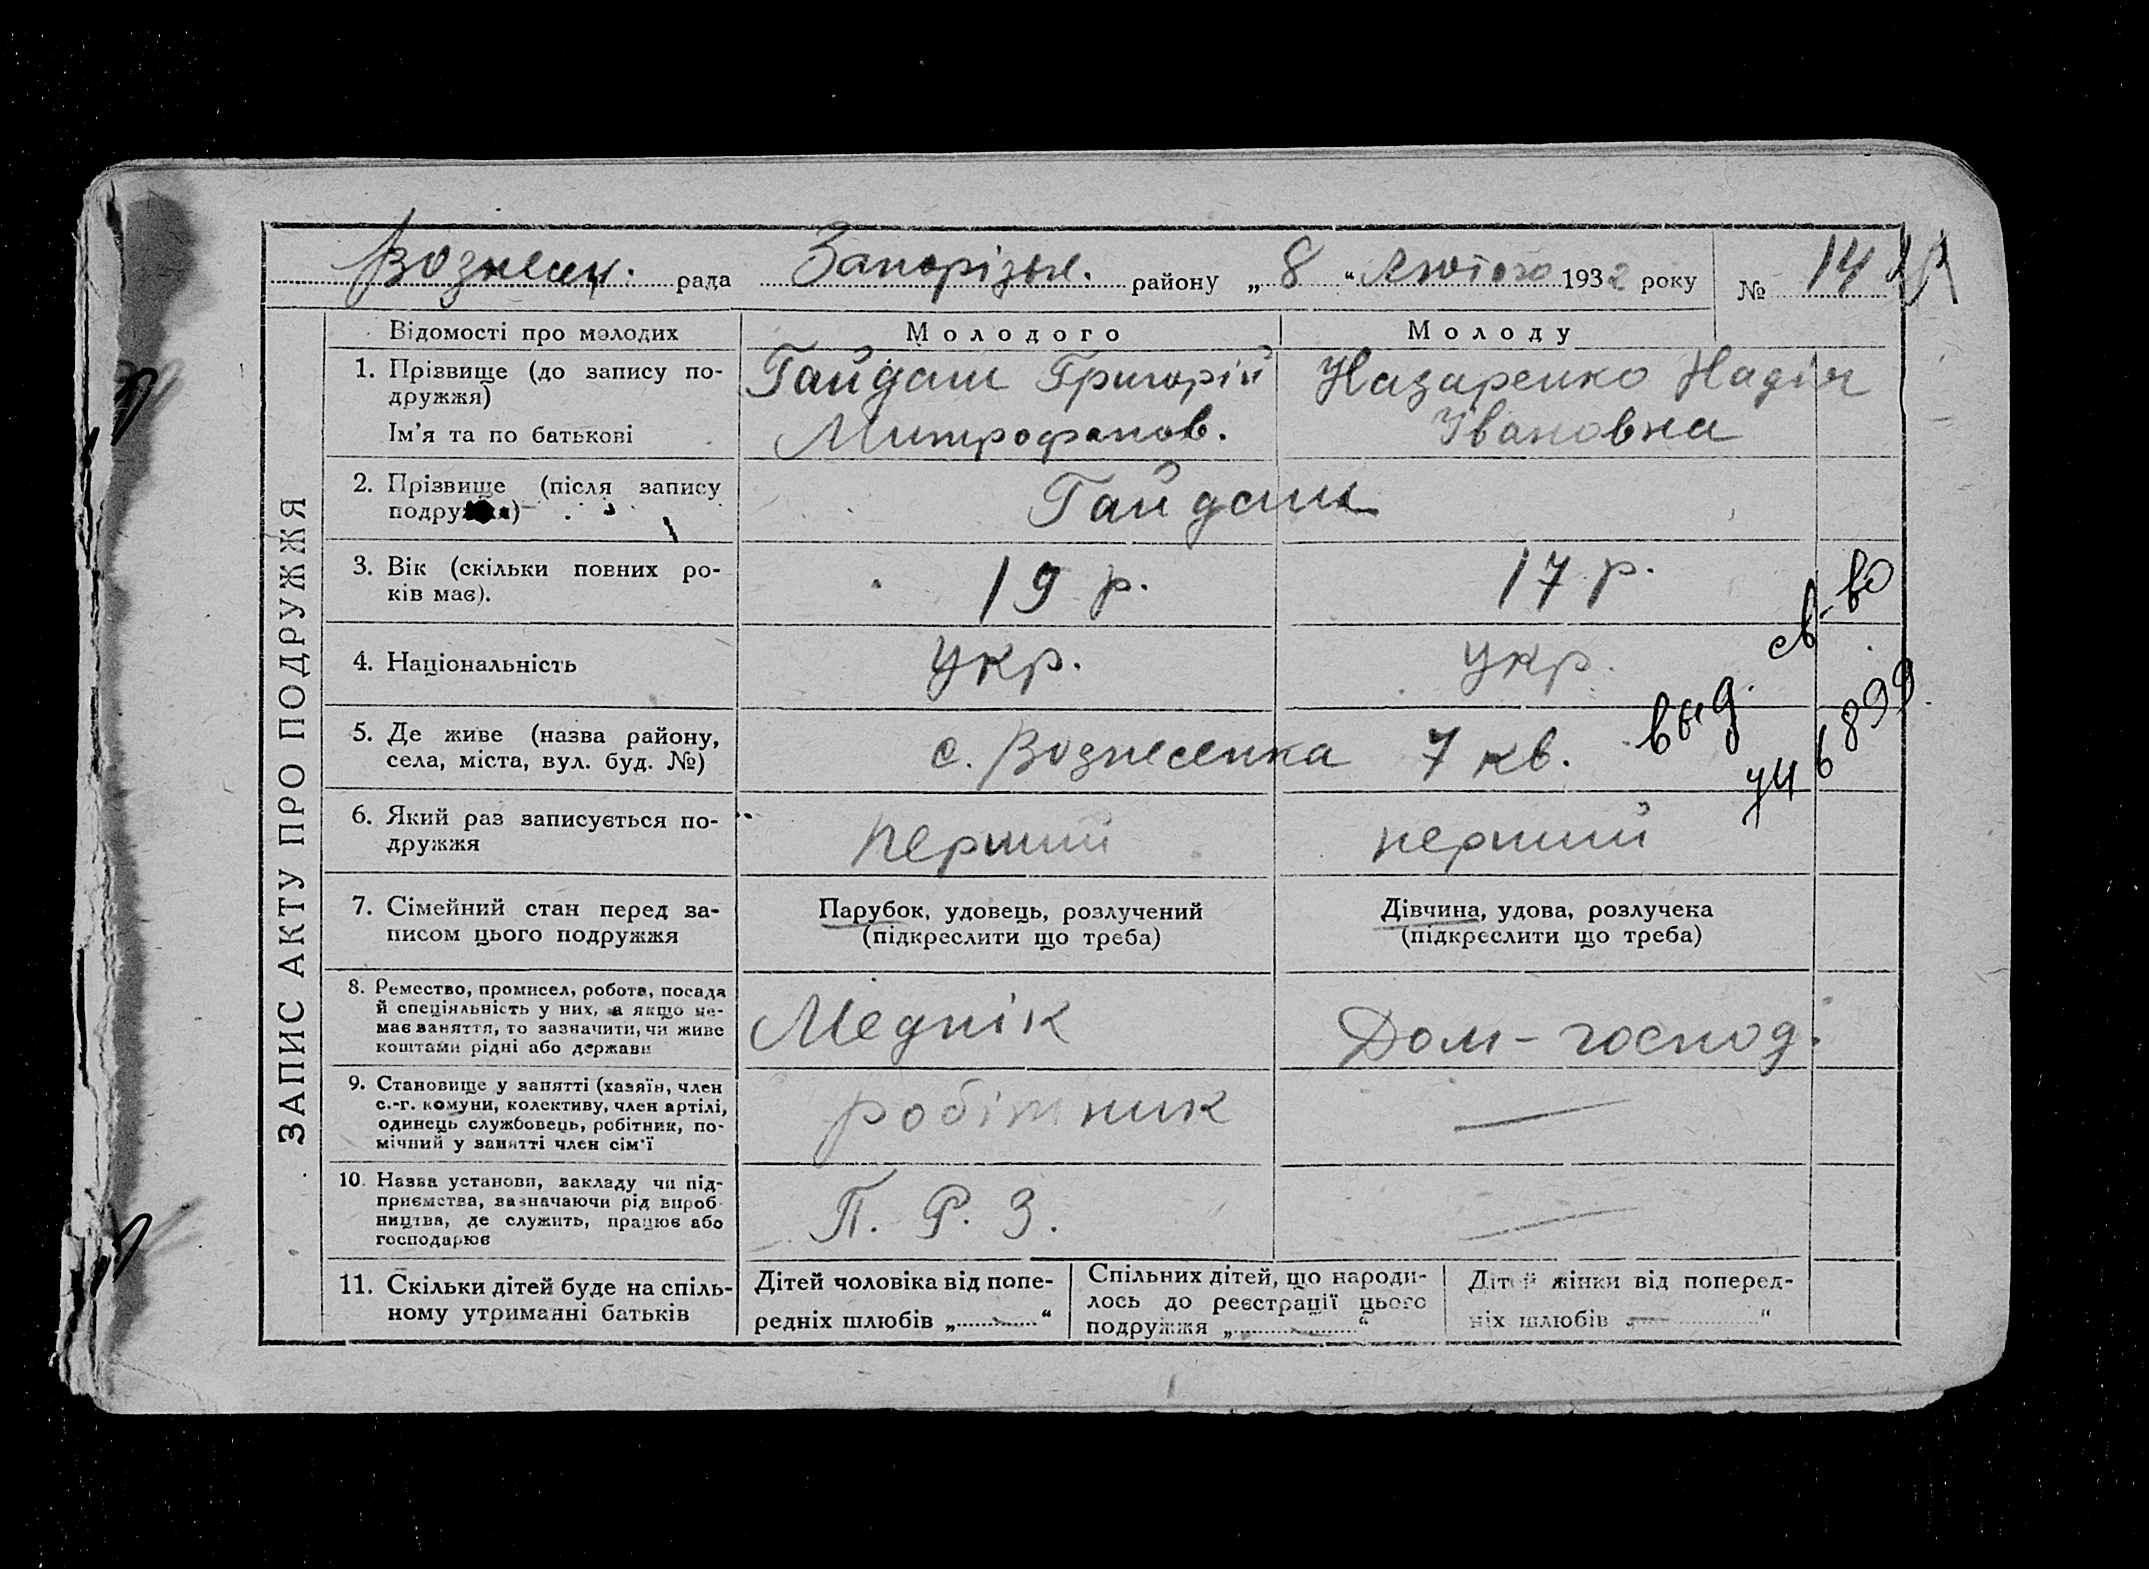 Вознесен. рада Запорізьк. району „ 8 “ Лютого 1932 року № 14
ЗАПИС АКТУ ПРО ПОДРУЖЖЯ
Відомості про молодих
Молодого
Молоду
1. Прізвище (до запису по-
дружжя)
Ім’я та по батькові
Гайдаш Григорій
Митрофанов.
Назаренко Надія
Івановна
2. Прізвище (після запису
подружжя)
Гайдаш
3. Вік (скільки повних ро-
ків має).
19 р.
17 р.
4. Національність
укр.
укр.
5. Де живе (назва району,
села, міста, вул. буд. №)
с. Вознесенка 7 кв.
выд. св-во
6. Який раз записується по-
дружжя
перший
перший
7. Сімейний стан перед за-
писом цього подружжя
Парубок, удовець, розлучений
(підкреслити що треба)
Дівчина, удова, розлучена
(підкреслити що треба)
8. Ремество, промисел, робота, посада
й спеціяльність у них, а якщо не-
має заняття, то зазначити, чи живе
коштами рідні або держави
Меднік
Дом-господ.
9. Становище у занятті (хазяїн, член
с.-г. комуни, колективу, член артілі,
одинець службовець, робітник, по-
мічний у занятті член сім’ї
робітник
—
10. Назва установи, закладу чи під-
приємства, зазначаючи рід вироб-
ництва, де служить, працює або
господарює
П. Р. З.
—
11. Скільки дітей буде на спіль-
ному утриманні батьків
Дітей чоловіка від попе-
редніх шлюбів „ — “
Спільних дітей, що народи-
лось до реєстрації цього
подружжя „ — “
Дітей жінки від поперед-
ніх шлюбів „ — “